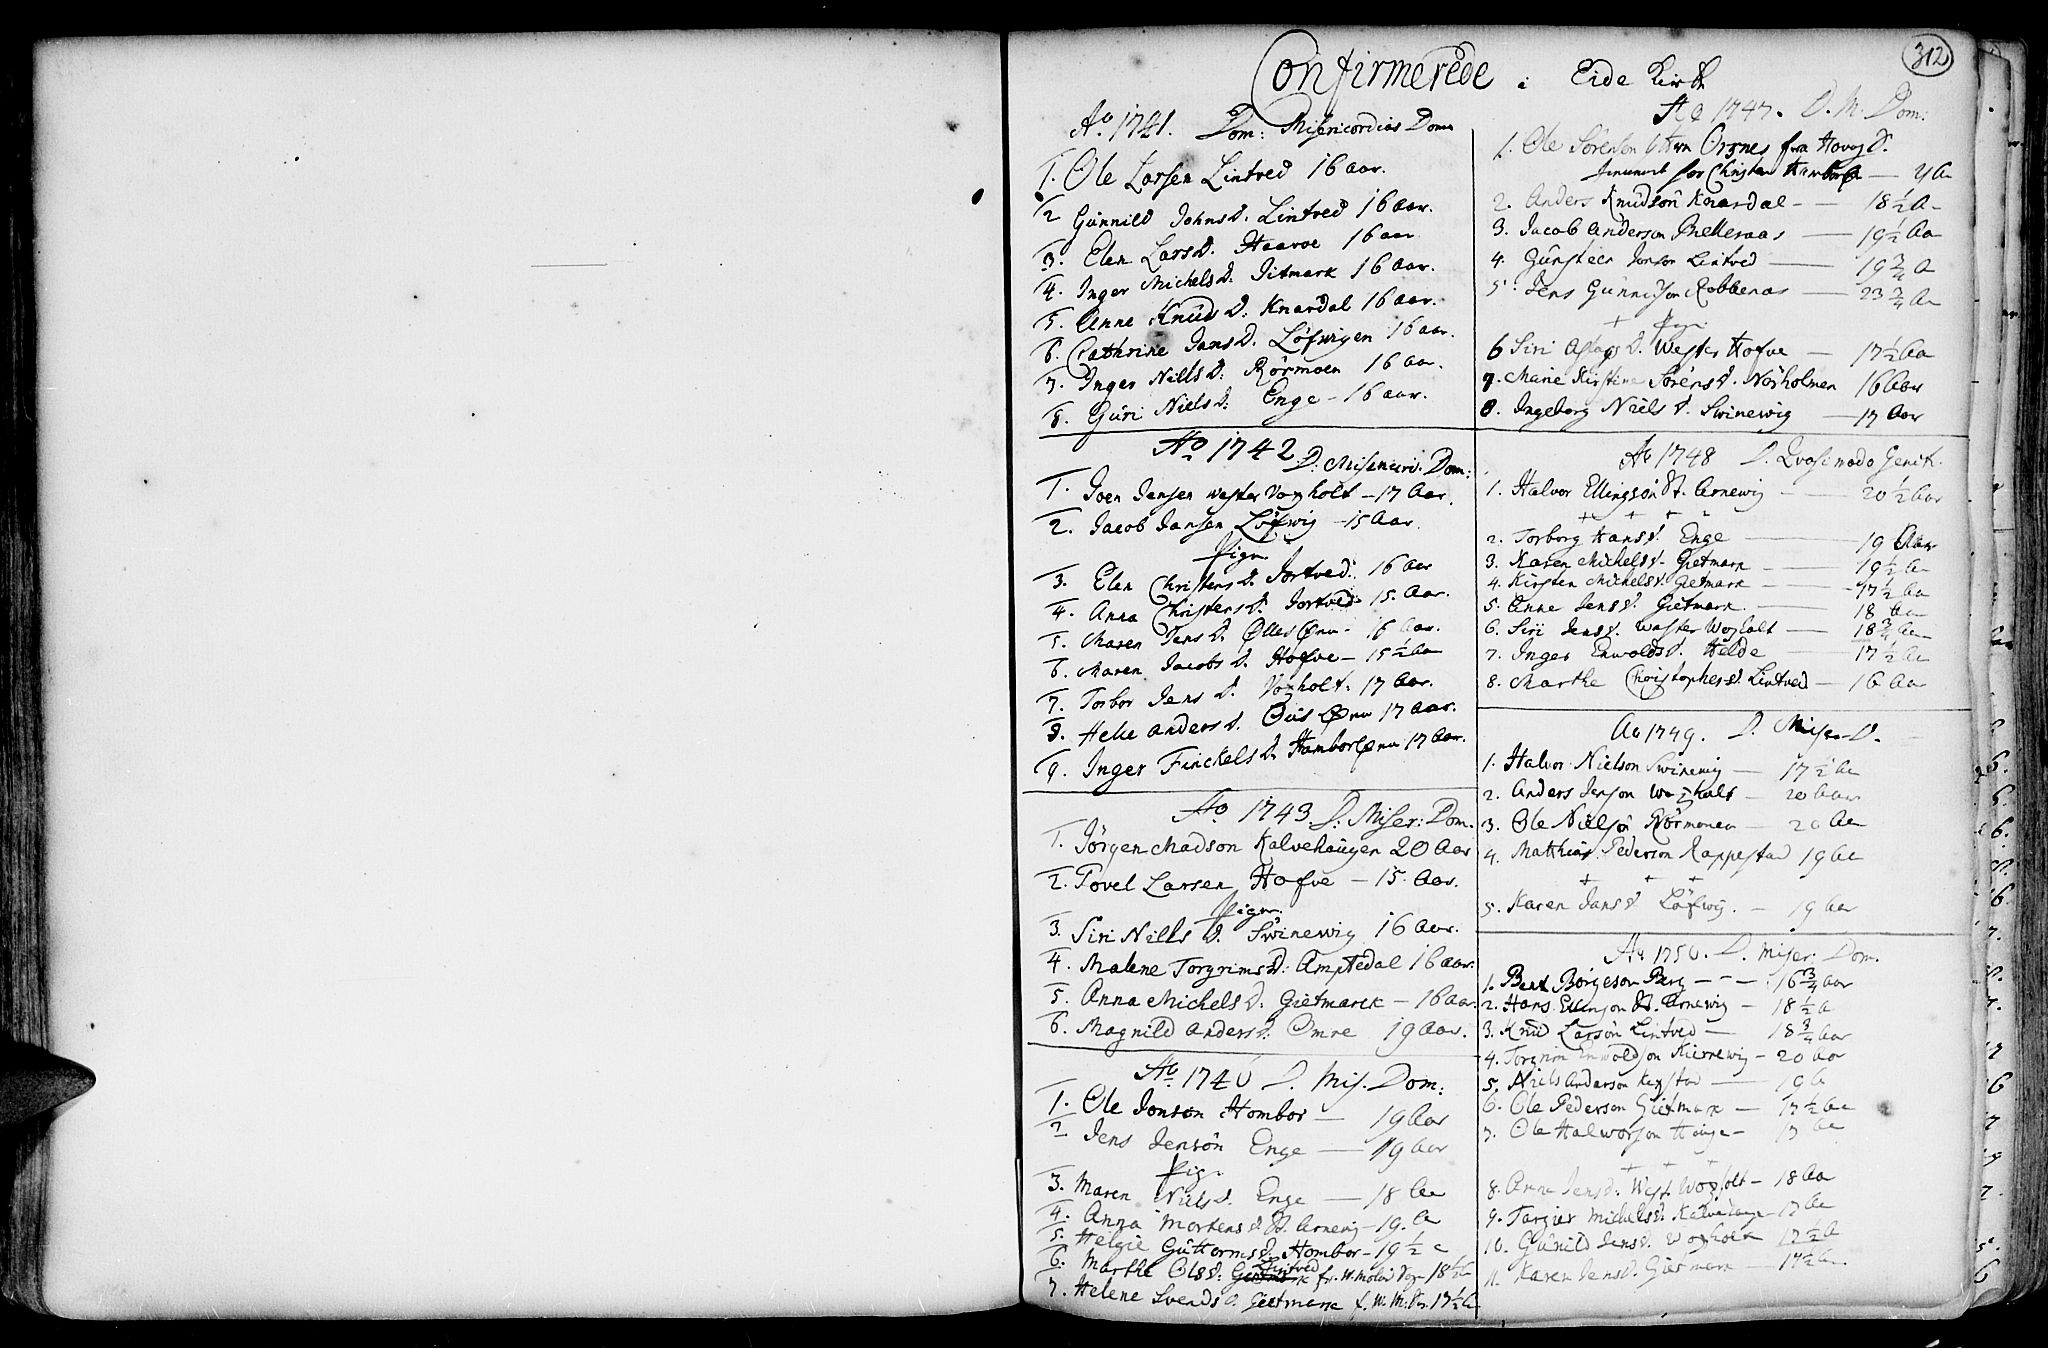 312
Confirmerede i Eide Kirk
Ao 1741. Dom: Misericordias Dom
1. Ole Larsen Lintved 16 aar.
2 Gunnild Johnsd. Lintved 16 aar.
3. Elen Larsd. Haave 16 aar
4. Inger Michelsd. Jitmark 16 aar.
5. Anne Knudsd: Knardal 16 aar.
6. Cathrine Jansd. Løfwigen 16 aar.
7. Inger Nillsd: Rörmoen 16 aar.
8. Guri Nielsd: Enge - 16 aar.
Ao 1742. D: Misericord. Dom:
1. Joen Jensen wester Voxholt - 17 Aar.
2. Jacob Jansen Løfwig - 15 Aar.
Piger
3. Elen Christensd. Jortved: 16 aar
4. Anna Christensd. Jortved: 15. Aar.
5. Maren Jensd. Øllesørn - 16 Aar.
6. Maren Jacobsd. Hofve - 15 1/2 Aar
7. Torbor Jensd. Voxholt. 17 Aar.
8. Helie Andersd. 17 Aar.
9. Inger Finckelsd. 17 Aar.
Ao 1743. D: Miser: Dom.
1. Jörgen Madson Kalvehaugen 20 Aar
2. Tovel Larsen Hofve - 15. Aar.
Piger.
3. Siri Nillsd. Swinewig 16 Aar.
4. Malene Torgrimsd: Amptedal 16 aar.
5. Anna Michelsd: Gietmarck - 16 Aar.
6. Magnild Andersd: Omre 19 Aar.
Ao 1746 D. Mis. Dom:
1. Ole Jonson Hombor — 19 Aar
2 Jens Jensön Enge — 19 Aar
Pig.
3. Maren Nielsd. Enge — 18 Aar
4. Anna Mortensd. St. Arnewig - 19. Aa
5. Helgie Guttormsd. Hombor - 19 1/2 a
6. Marthe Olsd: Lintved 18 1/2 Aa
7. Helene Svendsd. Gietmark 17 1/2 A
Ao 1747. D. M. Dom:
1. Ole Sörenson fra Hovag S.
for Christen
2. Anders Knudsön Knardal - — 18 1/2 A-
3. Jacob Anderson — 19 1/2 Aa
4. Gunsteen Jonson Lintved — 19 3/4 A
5. Jens Robberaas — 23 3/4 Aa
+ Pigr
6 Siri Aslagsd. Wester Hofve — 17 1/2 Aa
7. Marie Kirstine Sörensd. Norholmen 16 Aar
8. Ingeborg Nielsd. Swinewig — 17 Aar
Ao 1748 D. Qvasimodo Genit.
1. Halvor Ellingsön St. Arnewig — 20 1/2 Aar
+ + +
2. Torborg Hansd. Enge — 19 Aar
3. Karen Michelsd. Gietmark — 19 1/2 Aa
4. Kirsten Michelsd. Gietmark — 17 1/2 Aa
5. Anne Jensd. Gietmark — 18 Aa
6. Siri Jensd. Wester Woxholt — 18 3/4 Aa
7. Inger Enwoldsd. Helde — 17 1/2 Aa
8. Marthe Christophersd. Lintved — 16 Aar
Ao 1749. D. Miser. D.
1. Halvor Nielson Swinewig — 17 1/2 Aa
2. Anders Jenson Woxholt — 20 Aar
3. Ole Nielsön Rörmonen — 20 Aa
4. Mathias Pederson Rappestad 19 Aa
+ + +
5. Karen Jansd. Løfwig. — 19 Aar
Ao 1750. D. Miser: Dom.
1. Bent Börgeson Berg — 16 3/4 Aar
2. Hans Ellinson St. Arnewig — 18 1/2 A
3. Knud Larsön Lintved — 18 3/4 Aar
4. Torgrim Enwoldson Kierrewig - 20 Aar
5. Niels Anderson — 19 A
6. Ole Pederson Gietmark — 17 1/2 Aa
7. Ole Halworson Hauge - 17 Aa
+ + +
8. Anne Jensd. West Woxholt - 18 Aa
9. Targier Michelsd. Kalvehauge - 17 Aa
10. Gunild Jensd. Woxholt 17 1/2 A
11. Karen Jensd. Gietmark — 17 1/2 Aa